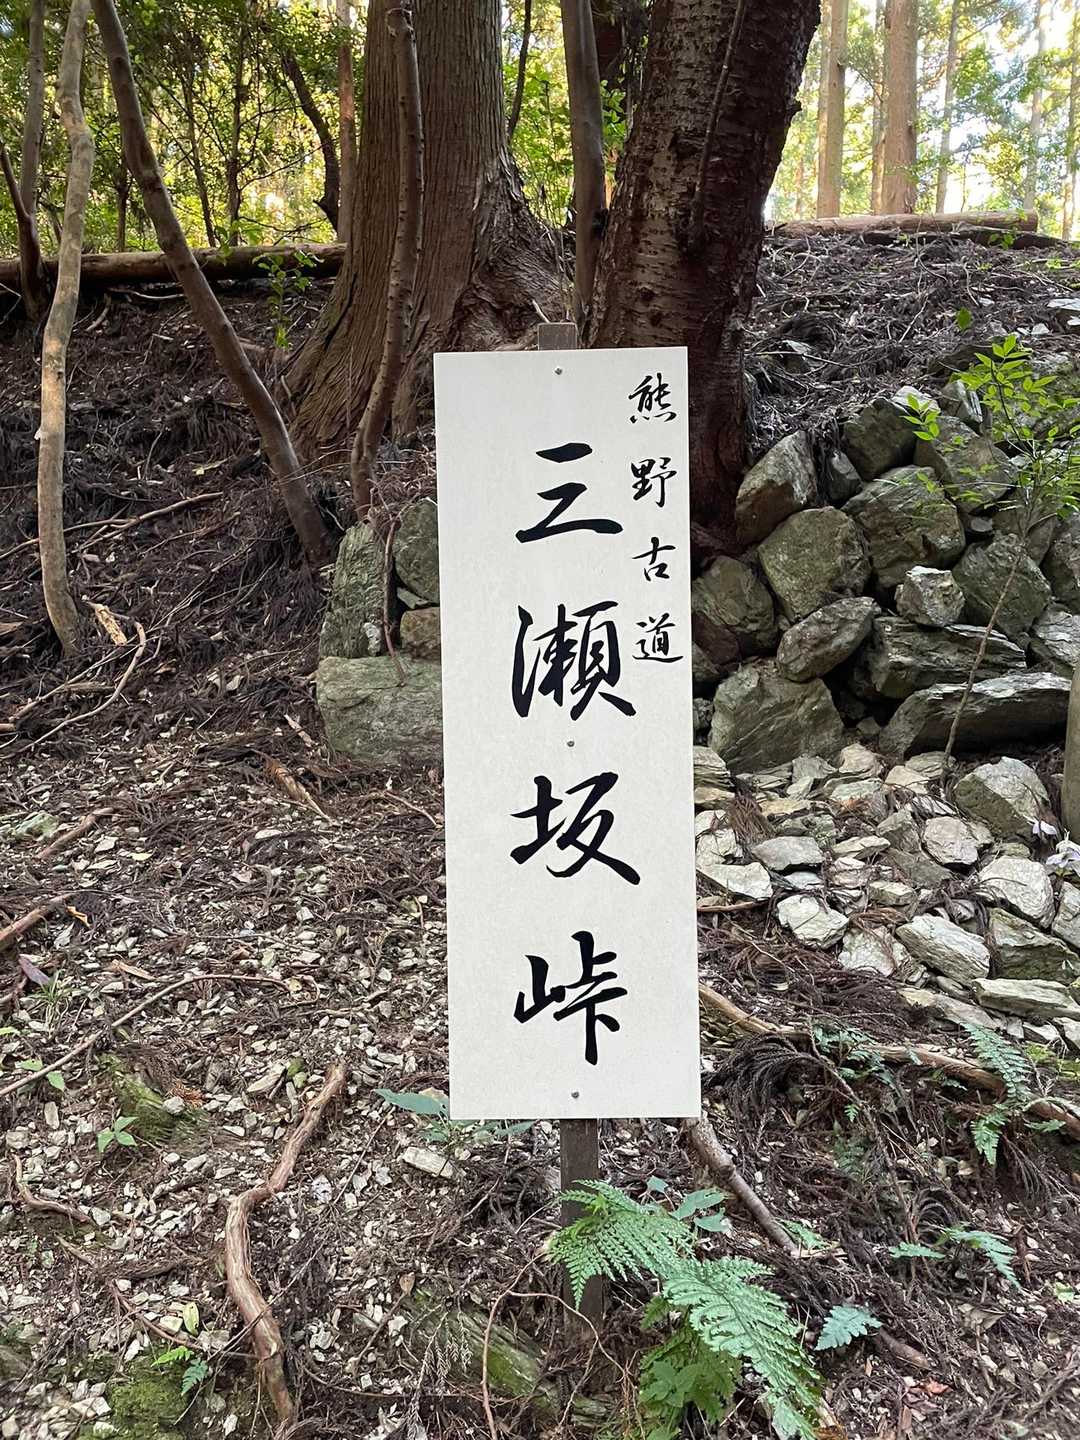 熊野古道
三瀬坂峠